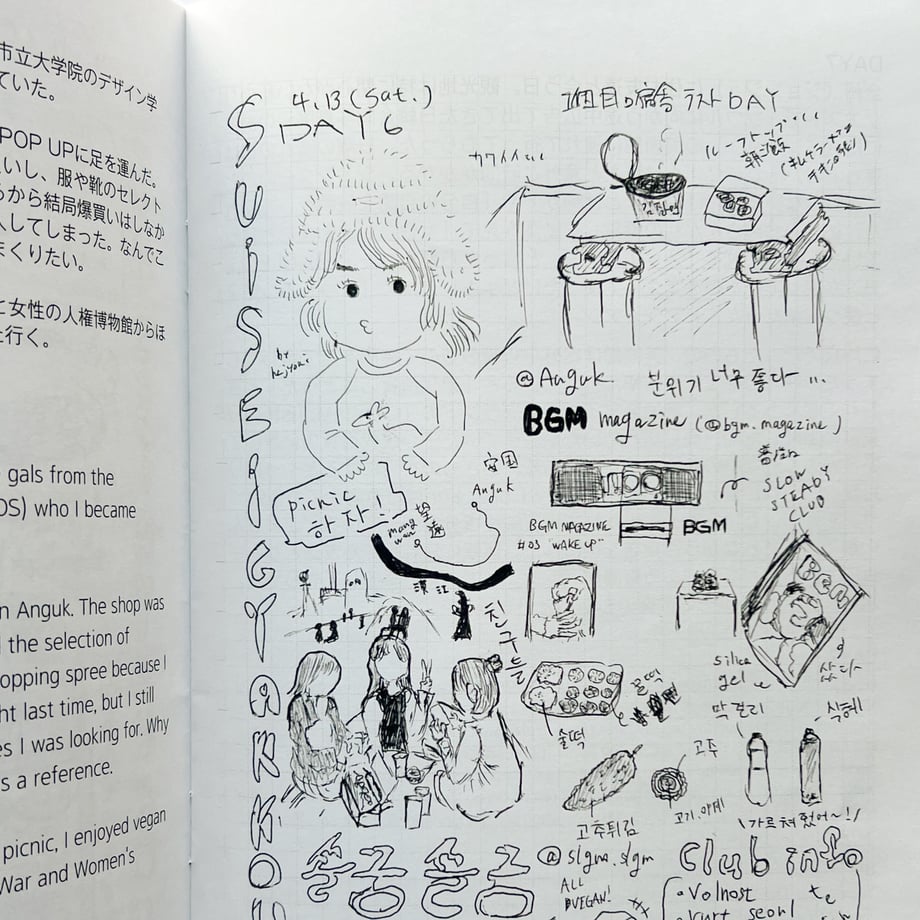 市立大学院のデザイン学
ていた。
POP UPに足を運んだ。
いし、服や靴のセレクト
らから結局爆買いはしなか
入してしまった。なんでこ
まくりたい。
と女性の人権博物館からほ
に行く。
gals from the
OS) who I became
n Anguk. The shop was
the selection of
opping spree because I
ht last time, but I still
es I was looking for. Why
s a reference.
picnic, I enjoyed vegan
War and Women's
4.13 (Sat.)
DAY 6
1個目の宿舎ラストDAY
カワイイ
ルーフトップ
朝ご飯
김치
by
@Anguk. 분위기 너무 좋다 ...
BGM magazine (@bgm.magazine)
picnic
하자!
安国
Anguk
望遠
mangwon
漢江
BGM MAGAZINE
#03 "WAKE UP"
BGM
SLOW
STEADY
CLUB
BGM
친구들
silica
gel
샀다
꿀떡
술떡
막걸리
식혜
고추
고추튀김
\가르쳐줬어~!/
@slgm.slgm
ALL
VEGAN!
Club info
・volnost
seoul
SUISEIGYAKKO